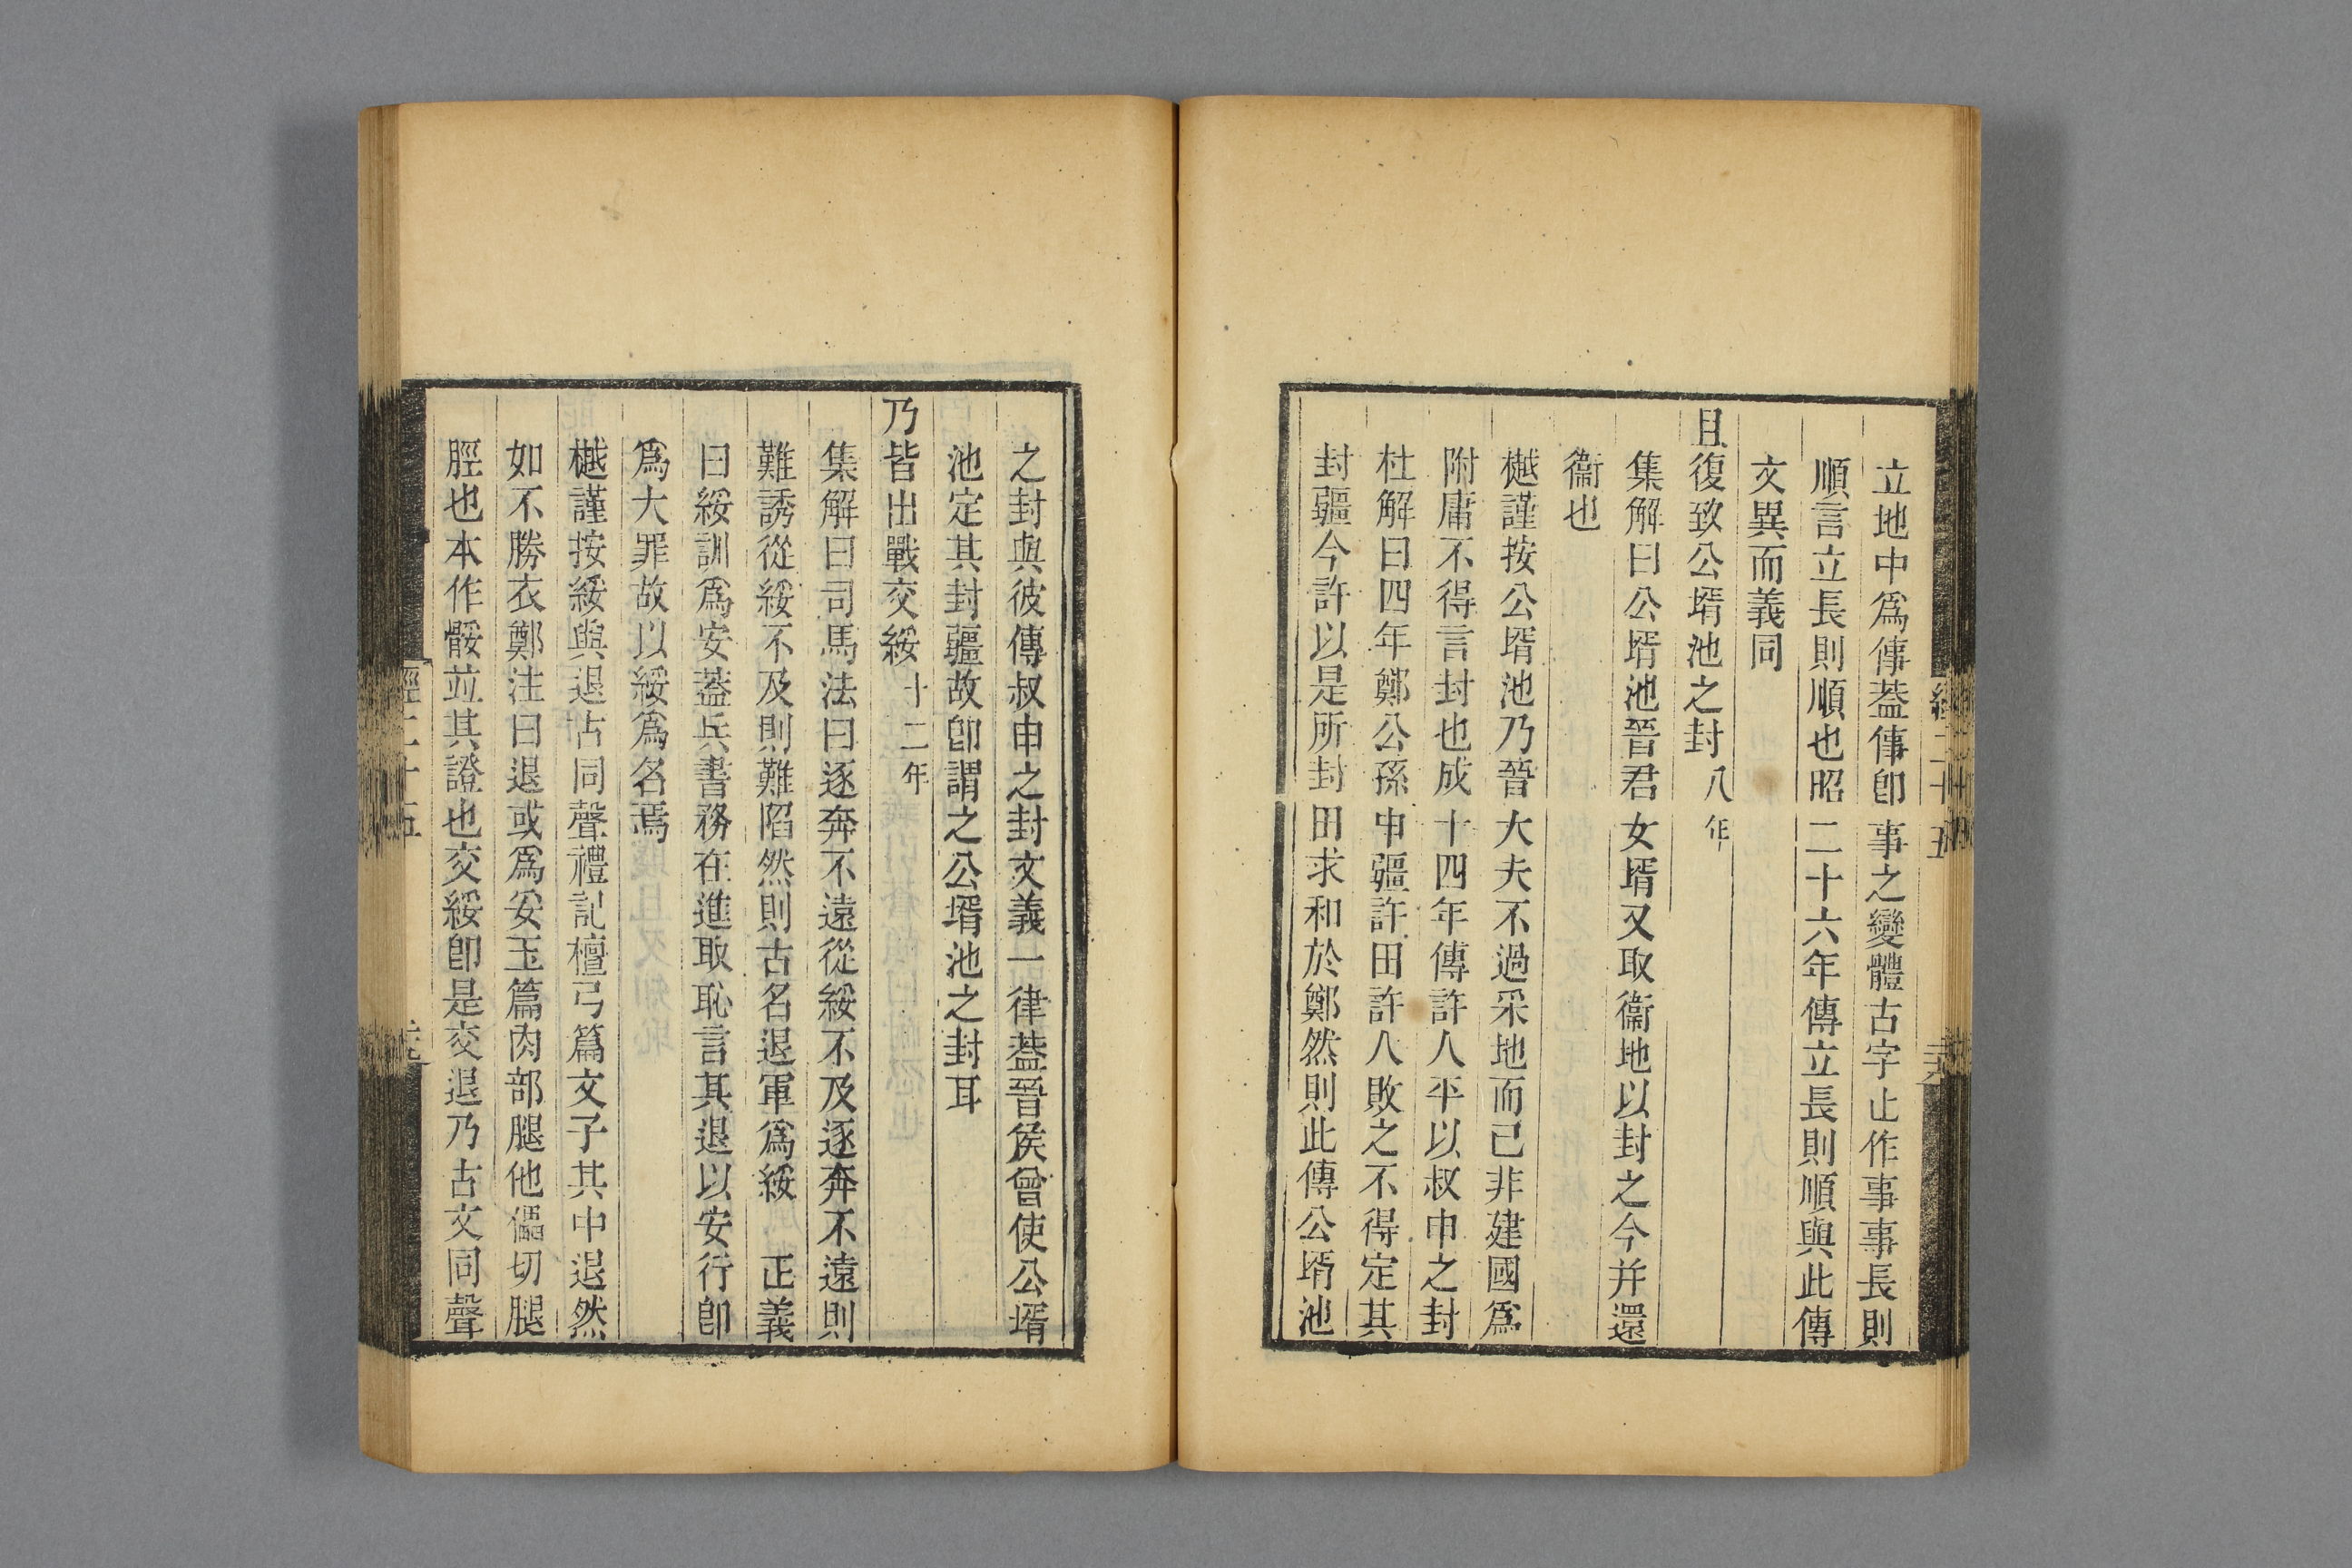 立地中爲傳葢傳卽事之變體古字止作事事長則
順言立長則順也昭二十六年傳立長則順與此傳
文異而義同
且復致公壻池之封八年
集解曰公壻池晉君女壻又取衞地以封之今并還
衞也
樾謹按公壻池乃晉大夫不過采地而已非建國爲
附庸不得言封也成十四年傳許人平以叔申之封
杜解曰四年鄭公孫申疆許田許人敗之不得定其
封疆今許以是所封田求和於鄭然則此傳公壻池
之封與彼傳叔申之封文義一律葢晉侯曾使公壻
池定其封疆故卽謂之公壻池之封耳
乃皆出戰交綏十二年
集解曰司馬法曰逐奔不遠從綏不及逐奔不遠則
難誘從綏不及則難陷然則古名退軍爲綏 正義
曰綏訓爲安葢兵書務在進取恥言其退以安行卽
爲大罪故以綏爲名焉
樾謹按綏與退古同聲禮記檀弓篇文子其中退然
如不勝衣鄭注曰退或爲妥玉篇肉部腿他儡切腿
脛也本作骽並其證也交綏卽是交退乃古文同聲
經二十五